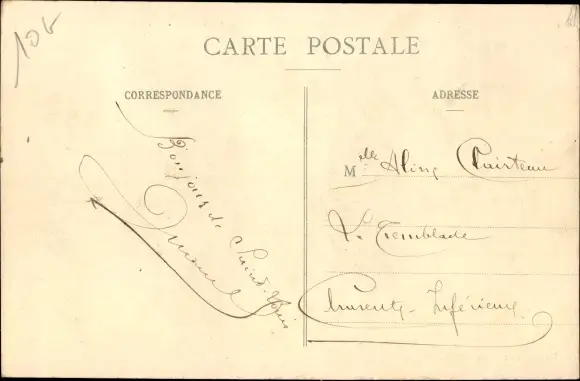 106
CARTE POSTALE
CORRESPONDANCE
Bonjour de
ADRESSE
Melle Aline
La Tremblade
Charente-Inférieure